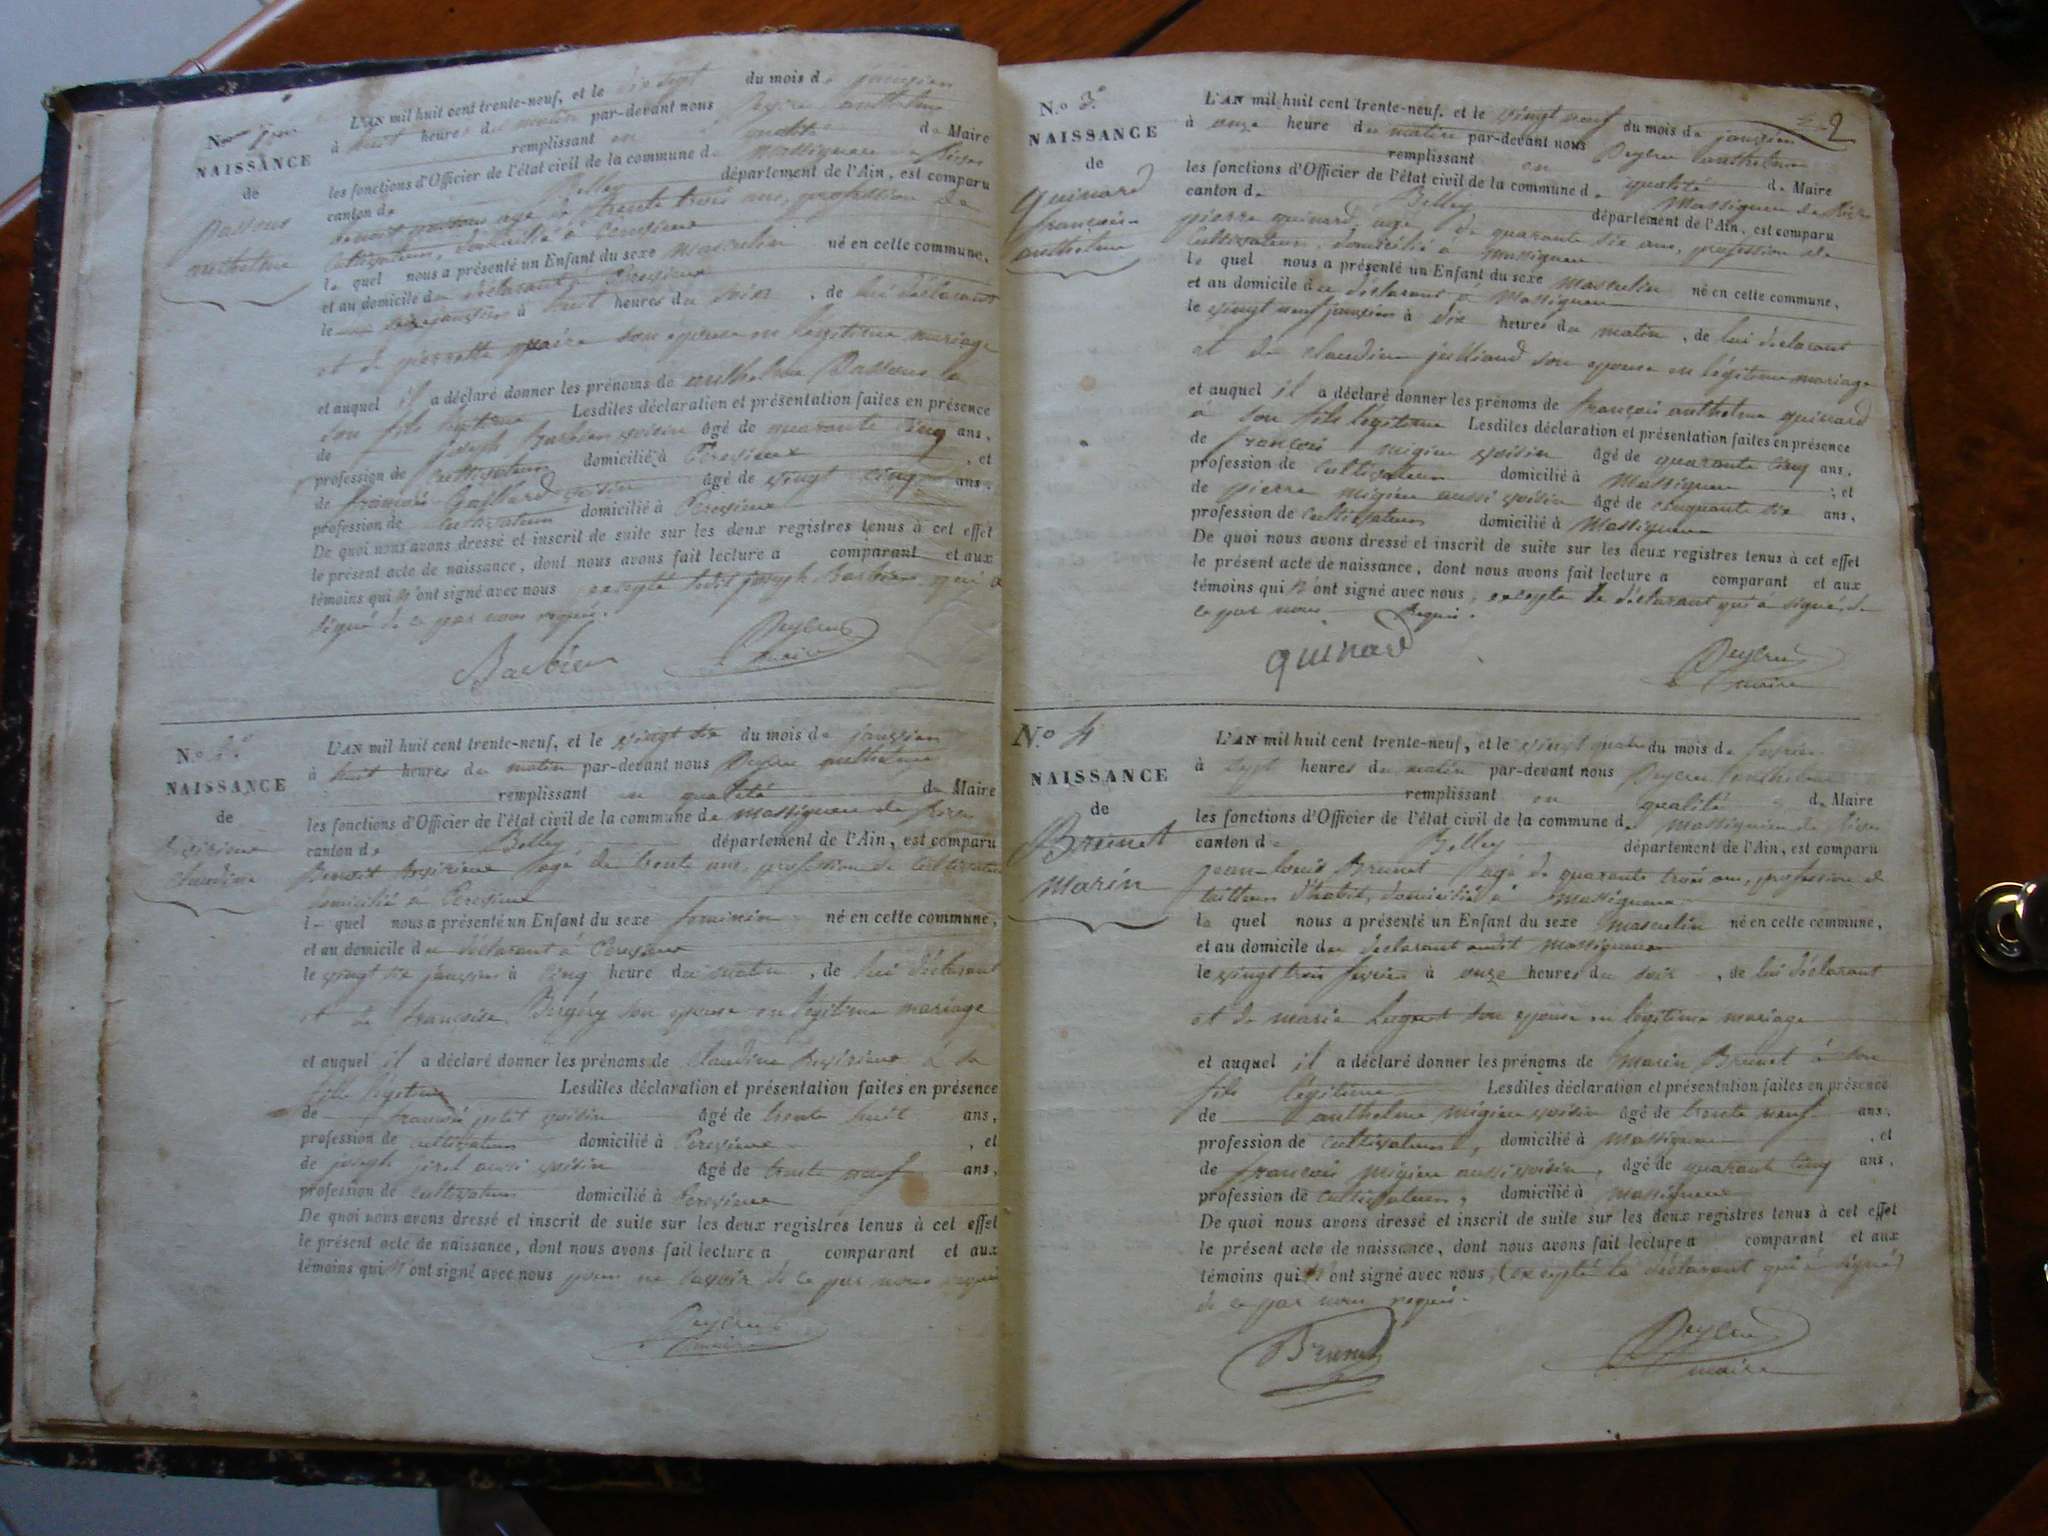 NAISSANCE
de
anthelme
L'AN mil huit cent trente-neuf, et le dix sept du mois de janvier
à huit heures du matin par-devant nous Peyeru anthelme
remplissant en qualité de Maire
les fonctions d'Officier de l'état civil de la commune de Massigneu de Rives
canton de Belley département de l'Ain, est comparu
benoit âgé de trente trois ans, profession de
cultivateur, domicilié à
le quel nous a présenté un Enfant du sexe masculin né en cette commune,
et au domicile du déclarant à
le janvier à huit heures du soir, de lui déclarant
et de pierrette son épouse en légitime mariage
et auquel il a déclaré donner les prénoms de anthelme à
son fils légitime Lesdites déclaration et présentation faites en présence
de joseph Barbier voisin âgé de quarante cinq ans,
profession de cultivateur domicilié à , et
de françois voisin âgé de vingt cinq ans,
profession de cultivateur domicilié à
De quoi nous avons dressé et inscrit de suite sur les deux registres tenus à cet effet
le présent acte de naissance, dont nous avons fait lecture a comparant et aux
témoins qui n'ont signé avec nous excepté ledit joseph Barbier qui a
signé de ce par nous requis.
Barbier
maire
N.o 2.o
NAISSANCE
de
claudine
L'AN mil huit cent trente-neuf, et le vingt six du mois de janvier
à huit heures du matin par-devant nous anthelme
remplissant en qualité de Maire
les fonctions d'Officier de l'état civil de la commune de massigneu de rives
canton de Belley département de l'Ain, est comparu
Benoit âgé de trente ans, profession de cultivateur
domicilié à
le quel nous a présenté un Enfant du sexe feminin né en cette commune,
et au domicile du déclarant à
le vingt six janvier à cinq heure du matin, de lui déclarant
et de francoise son epouse en légitime mariage
et auquel il a déclaré donner les prénoms de claudine à sa
fille légitime Lesdites déclaration et présentation faites en présence
de petit voisin âgé de trente huit ans,
profession de cultivateur domicilié à , et
de joseph aussi voisin âgé de trente neuf ans,
profession de cultivateur domicilié à
De quoi nous avons dressé et inscrit de suite sur les deux registrés tenus à cet effet
le présent acte de naissance, dont nous avons fait lecture a comparant et aux
témoins qui n'ont signé avec nous pour ne savoir de ce par nous requis
maire
2
N.o 3.o
NAISSANCE
de
quinard
françois
anthelme
L'AN mil huit cent trente-neuf, et le vingt neuf du mois de janvier
à onze heure du matin par-devant nous anthelme
remplissant en qualité de Maire
les fonctions d'Officier de l'état civil de la commune de Massigneu de Rives
canton de Belley département de l'Ain, est comparu
pierre quinard, agé de quarante six ans, profession de
cultivateur, domicilié à massigneu
le quel nous a présenté un Enfant du sexe masculin né en cette commune,
et au domicile du déclarant à Massigneu
le vingt neuf janvier à dix heures du matin, de lui déclarant
et de claudine julliand son epouse en légitime mariage
et auquel il a déclaré donner les prénoms de françois anthelme quinard
a son fils légitime Lesdites déclaration et présentation faites en présence
de françois migieu voisin âgé de quarante cinq ans,
profession de cultivateur domicilié à Massigneu ; et
de pierre migieu aussi voisin âgé de cinquante six ans,
profession de cultivateur domicilié à Massigneu
De quoi nous avons dressé et inscrit de suite sur les deux registres tenus à cet effet
le présent acte de naissance, dont nous avons fait lecture a comparant et aux
témoins qui n'ont signé avec nous, excepté le déclarant qui à signé, de
ce par nous requis.
quinard
maire
N.o 4
NAISSANCE
de
Brunet
Marin
L'AN mil huit cent trente-neuf, et le vingt quatre du mois de fevrier
à sept heures du matin par-devant nous anthelme
remplissant en qualité de Maire
les fonctions d'Officier de l'état civil de la commune de massigneu de rives
canton de Belley département de l'Ain, est comparu
jean-louis Brunet agé de quarante trois ans, profession de
tailleur d'habit, domicilié à massigneu
le quel nous a présenté un Enfant du sexe masculin né en cette commune,
et au domicile du déclarant audit massigneu
le vingt trois fevrier à onze heures du soir, de lui déclarant
et de marie son epouse en légitime mariage
et auquel il a déclaré donner les prénoms de marin Brunet à son
fils légitime Lesdites déclaration et présentation faites en présence
de anthelme migieu voisin âgé de trente neuf ans,
profession de cultivateur, domicilié à massigneu , et
de françois migieu aussi voisin, âgé de quarante cinq ans,
profession de cultivateur, domicilié à massigneu
De quoi nous avons dressé et inscrit de suite sur les deux registres tenus à cet effet
le présent acte de naissance, dont nous avons fait lecture a comparant et aux
témoins qui n'ont signé avec nous, (excepté le déclarant qui à signé)
de ce par nous requis.
Brunet
maire